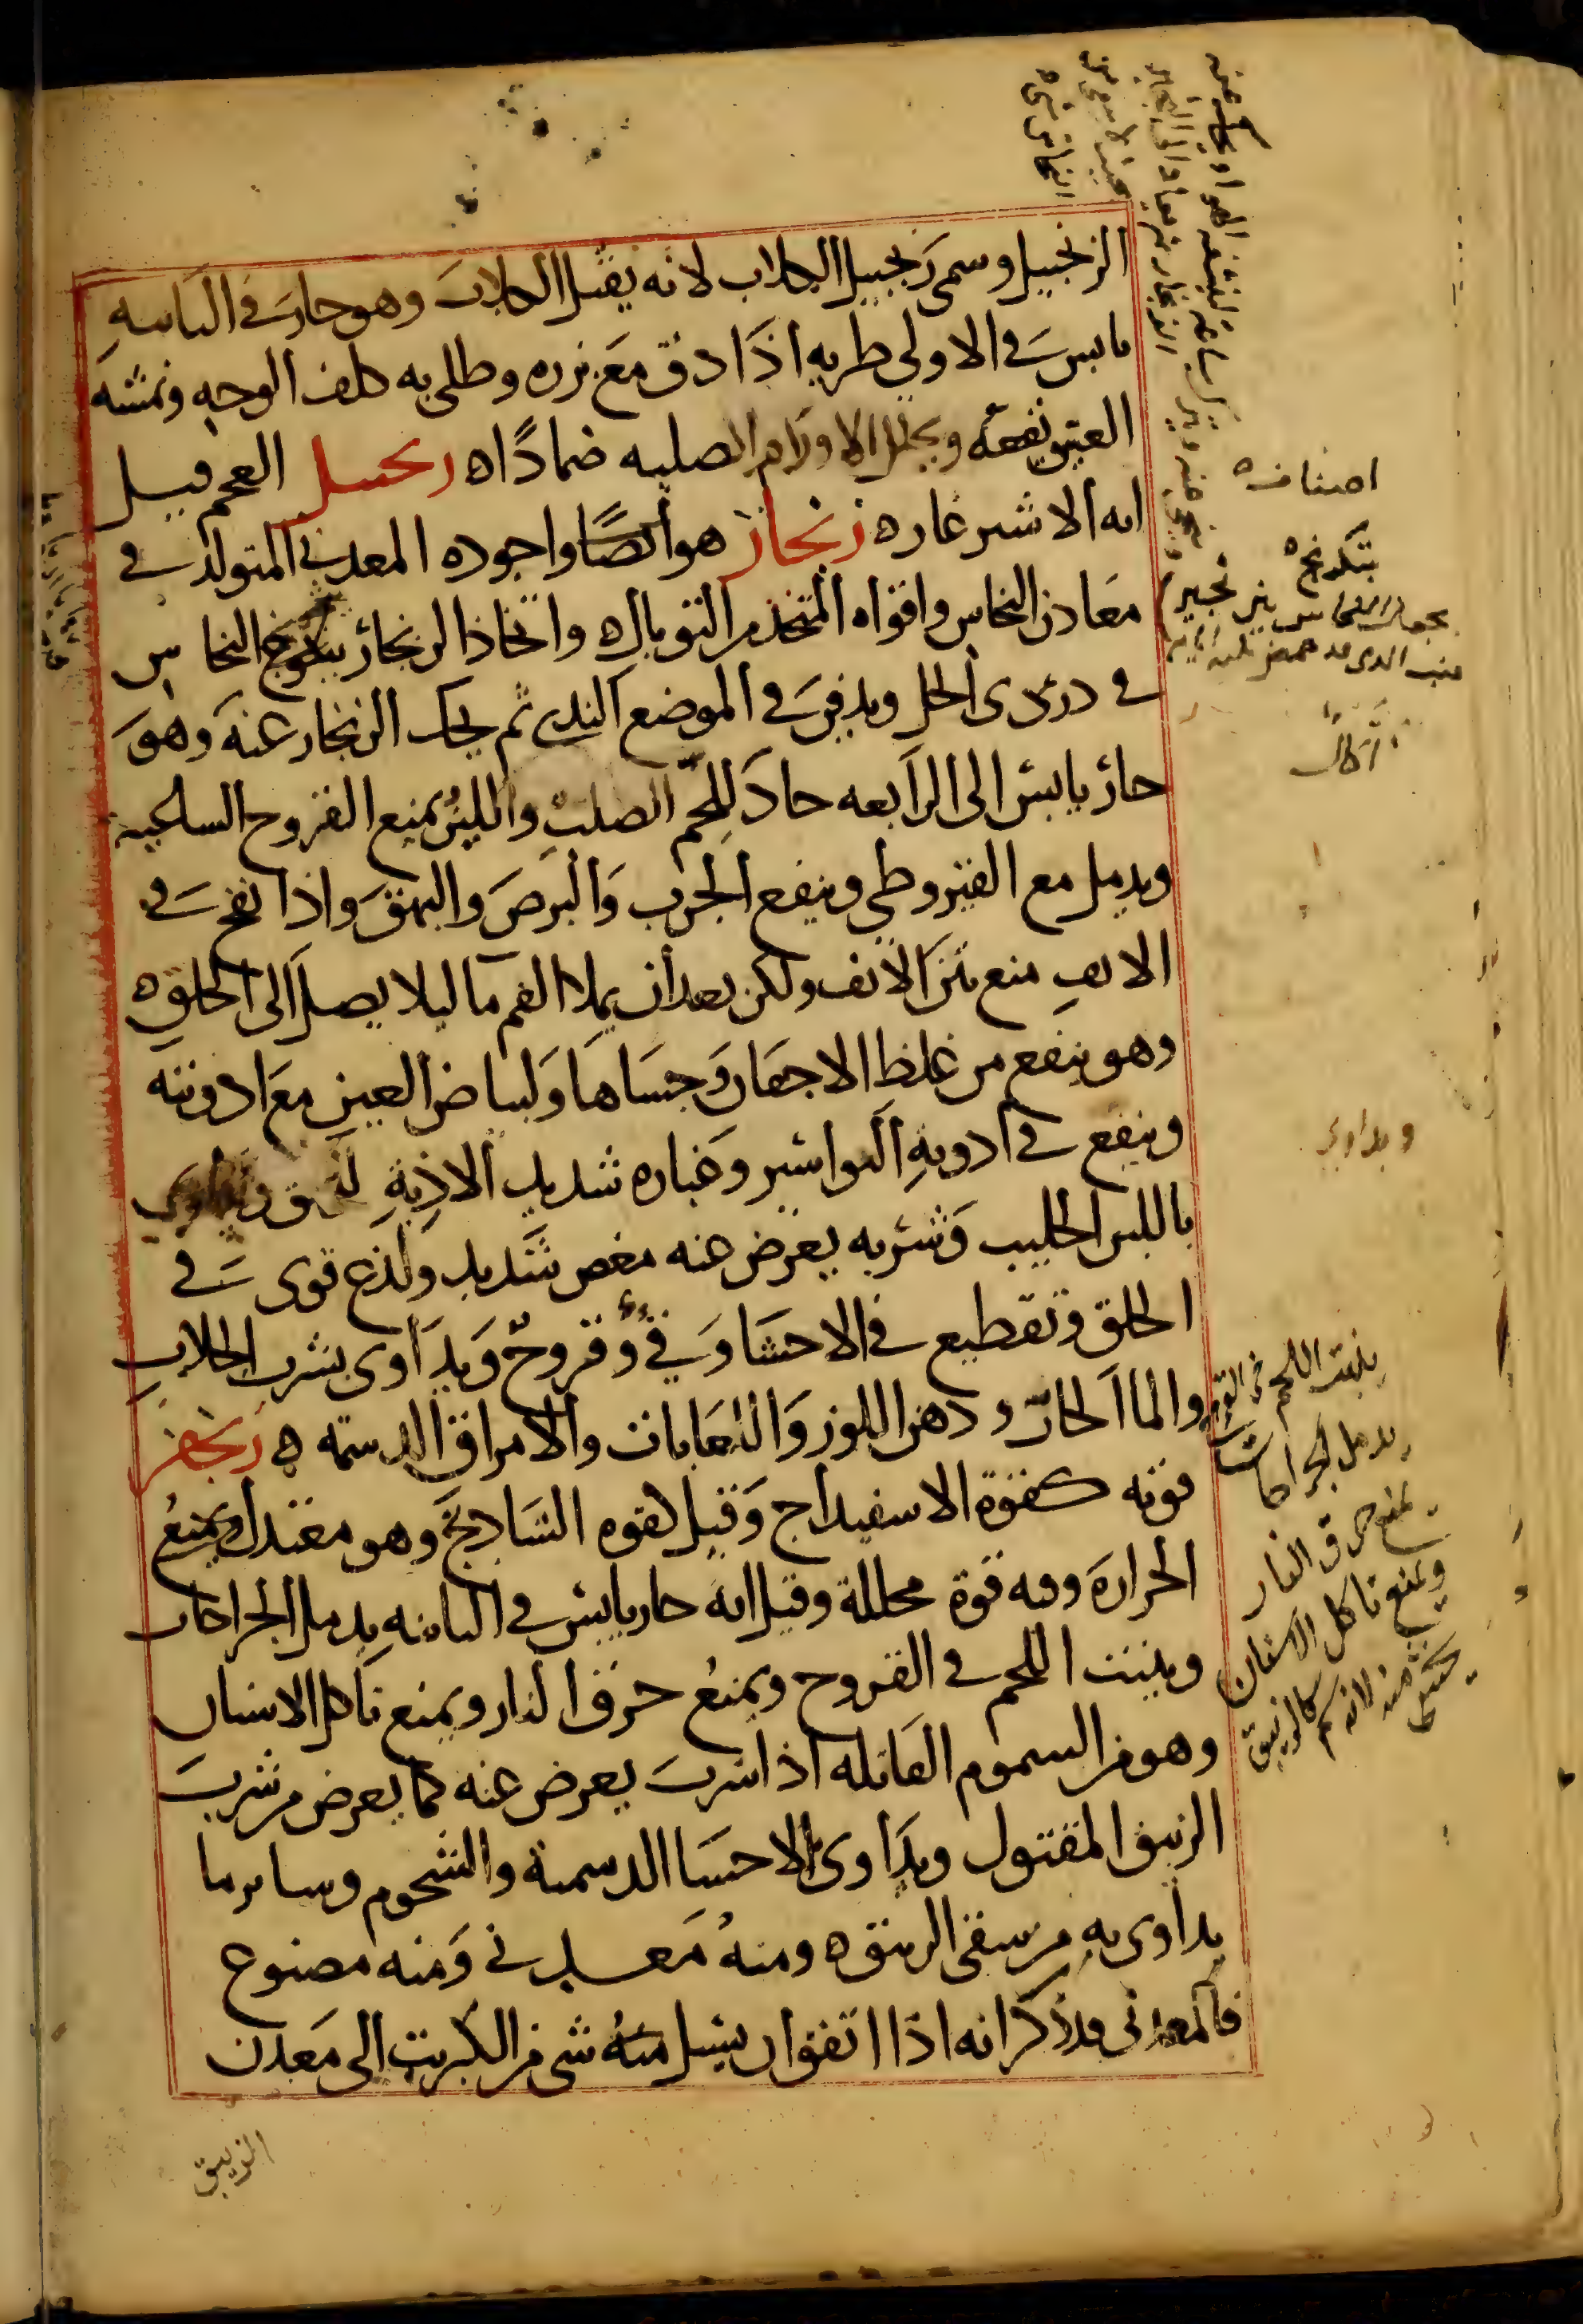 الزنجبيل وسمى زنجبيل الكلاب لانه يقتل الكلاب وهو حار فى الثانيه
يابس فى الاولي طريه اذا دق مع بزره وطلى به كلف الوجه ونمشه
العتيق نفعه ويحلل الاورام الصلبه ضمادًا ه زنجبيل العجم قيل
انه الاشترغاره زنجار هو اصنافا واجوده المعدني المتولد فى
معادن النحاس واقواه المتخذ من التوبال ه واتخاذ الزنجار بتكريج النحاس
فى دردى الخل ويدفن فى الموضع الندي ثم يحك الزنجار عنه وهو
حار يابس الى الرابعه حاد للحم الصلب واللين يمنع القروح الساعيه
ويدمل مع القيروطي وينفع الجرب والبرص والبهق واذا نفخ فى
الانف منع نتن الانف ولكن بعد ان يملا الفم ما ليلا يصل الى الحلق ه
وهو ينفع من غلظ الاجفان وجساها ولبياض العين مع ادويته
وينفع فى ادويه البواسير وغباره شديد الاذية ويداوى
باللبن الحليب وشربه يعرض عنه مغص شديد ولذع قوى فى
الحلق وتقطيع فى الاحشا وقى وقروح ويداوى بشرب الجلاب
والما الحار ودهن اللوز واللعابات والامراق الدسمه ه زنجفر
قوته كقوة الاسفيداج وقيل لقوه الشادنج وهو معتدل ويمنع
الحراره وفه قوة محللة وقيل انه حار يابس فى الثانيه يدمل الجراحات
وينبت اللحم فى القروح ويمنع حرق النار ويمنع تاكل الاسنان
وهو من السموم القاتله اذا شرب يعرض عنه كما يعرض من شرب
الزيبق المقتول ويداوى بالاحسا الدسمة والشحوم وساير ما
يداوى به من سقى الزيبق ه ومنه معدنى ومنه مصنوع
فالمعدنى قد ذكر انه اذا اتفق ان يسيل منه شى من الكبريت الى معدن
الزيبق
اصنافه
ويداوي
ينبت اللحم فى القروح
يدمل الجراحات
يمنع حرق النار
ويمنع تاكل الاسنان